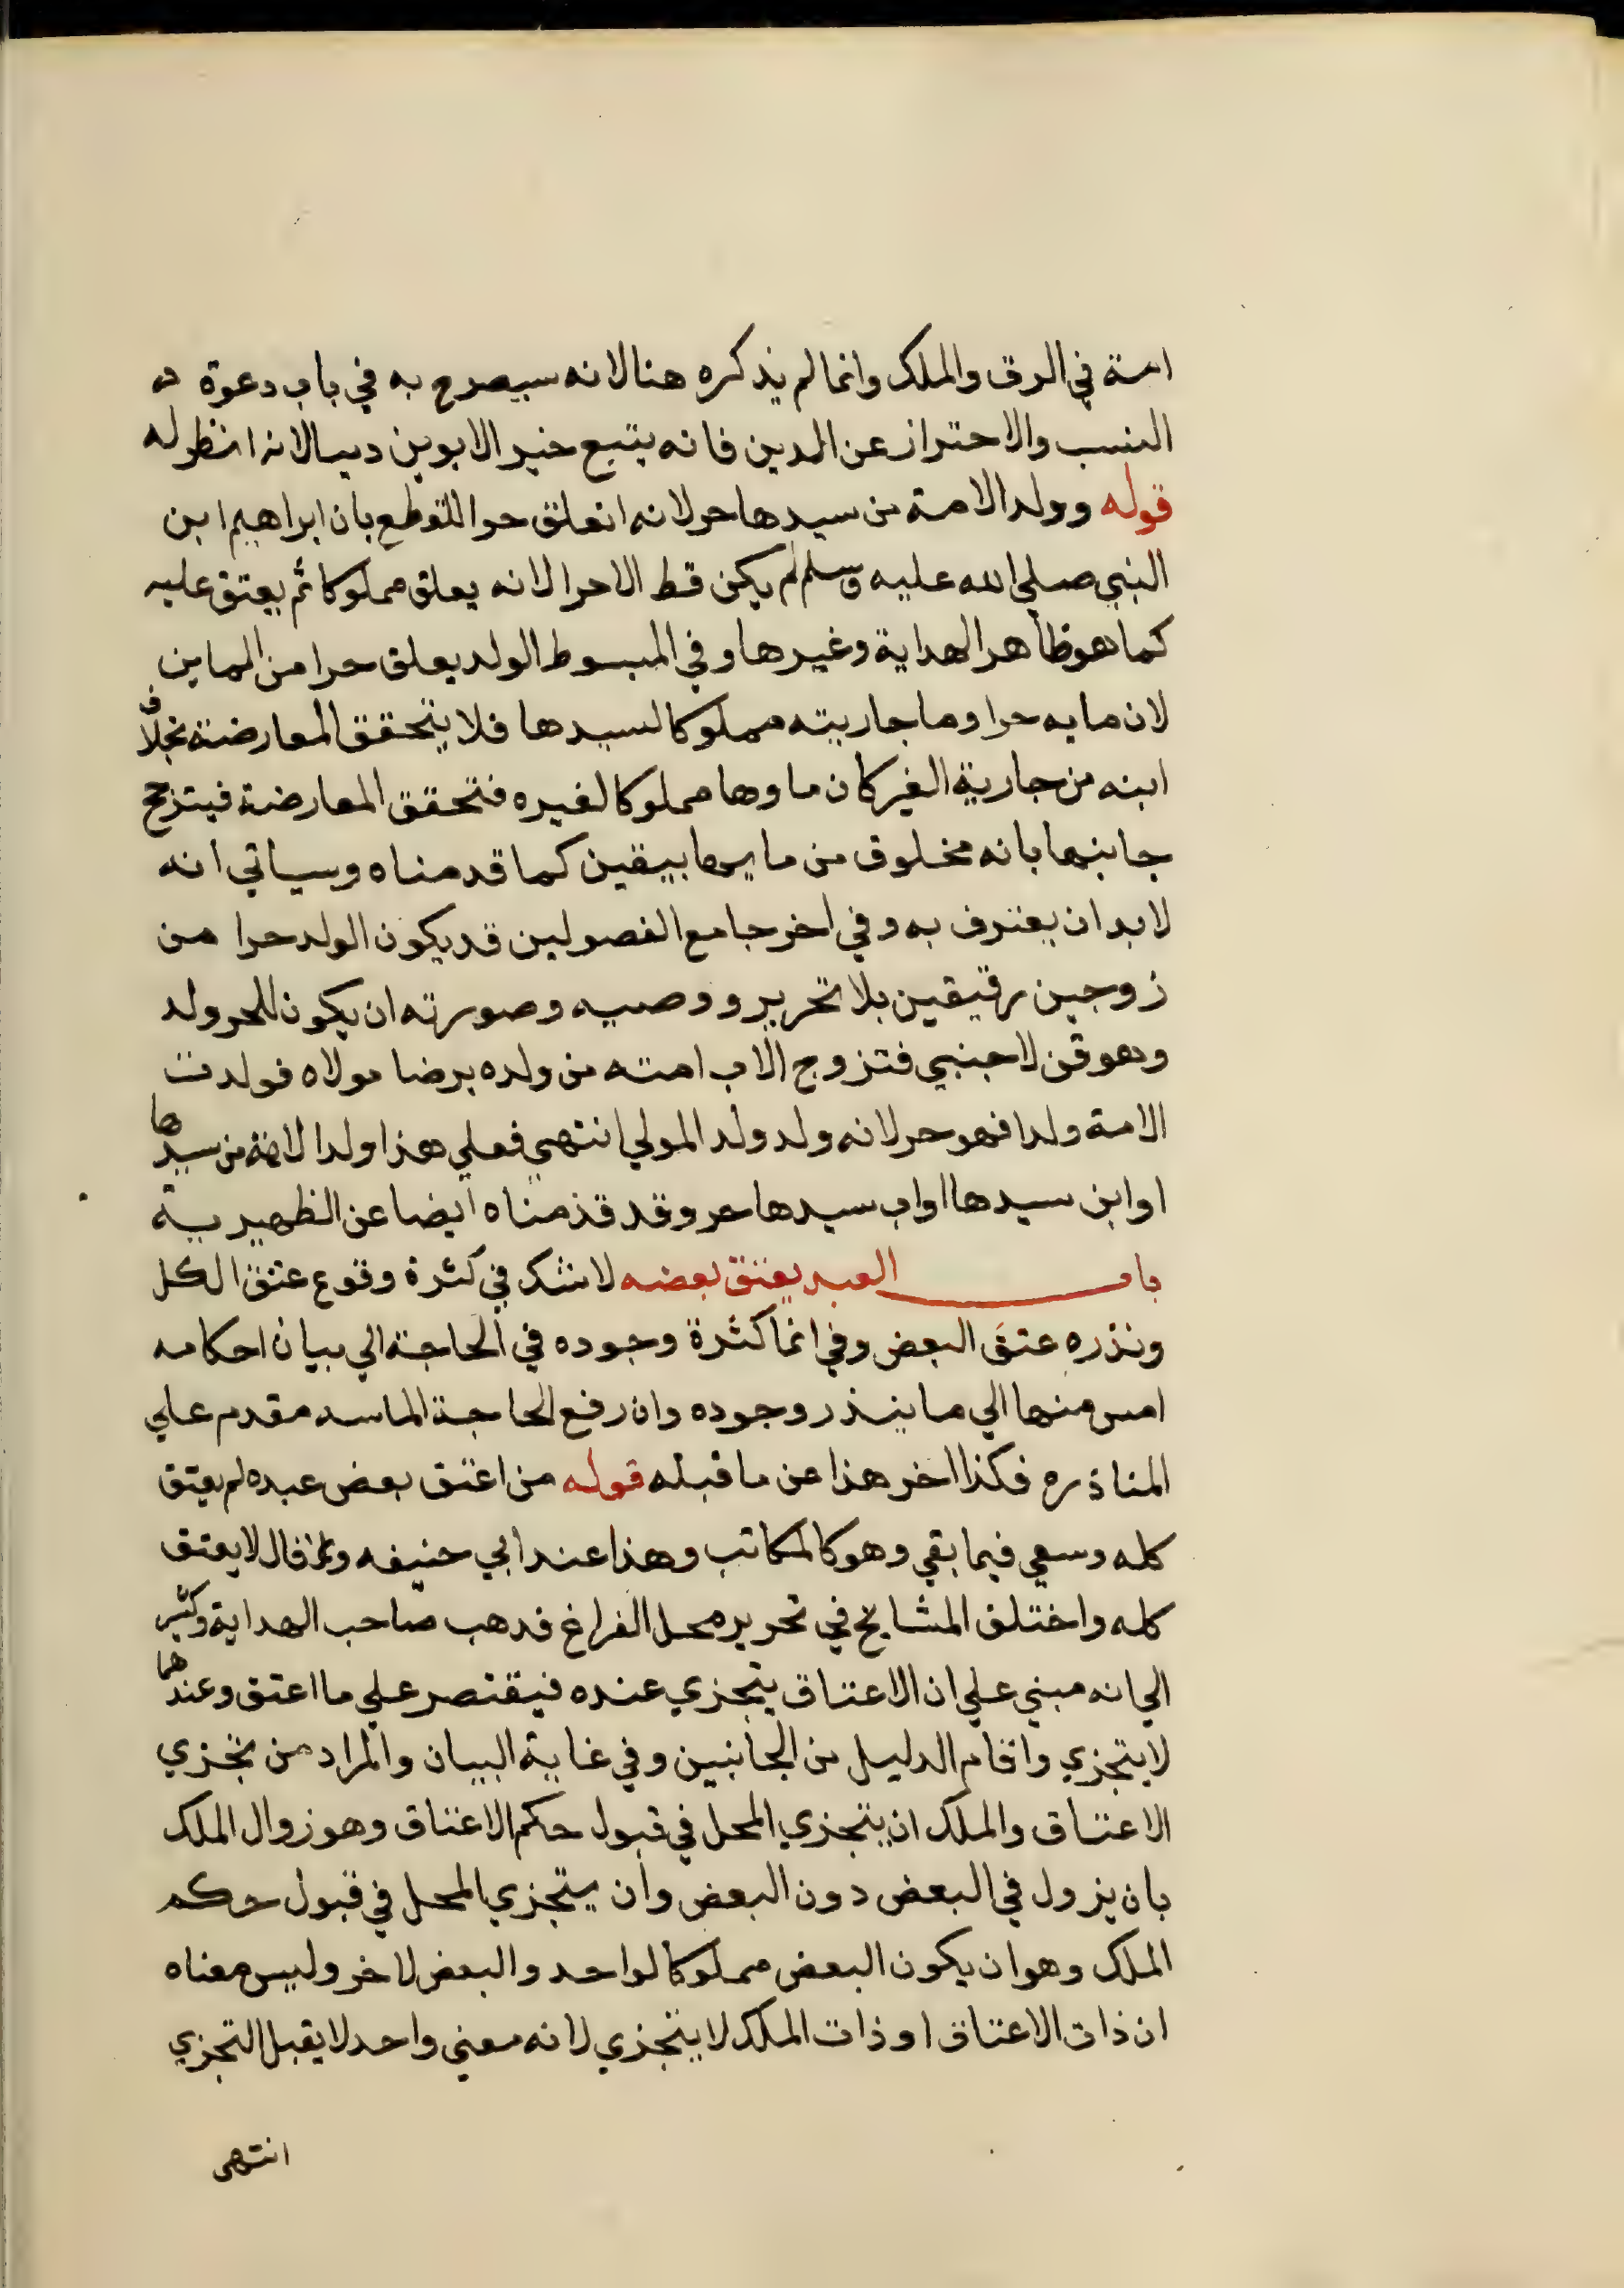 امة في الرق والملك وانما لم يذكره هنا لانه سيصرح به في باب دعوة
النسب والاحتراز عن الدين فانه يتبع خير الابوين دينا لانه انظر له
قوله وولد الامة من سيدها حر لانه انعلق حرا للقطع بان ابراهيم ابن
النبي صلي الله عليه وسلم لم يكن قط الا حرا لا انه يعلق مملوكا ثم يعتق عليه
كما هو ظاهر الهداية وغيرها وفي المبسوط الولد يعلق حرا من الماين
لان مايه حرا وما جاريته مملوكا لسيدها فلا يتحقق المعارضة بخلاف
ابنه من جارية الغير كان ماوها مملوكا لغيره فتحقق المعارضة فيترجح
جانبها بانه مخلوق من مايها بيقين كما قدمناه وسياتي انه
لا بد ان يعترف به وفي اخر جامع الفصولين قد يكون الولد حرا من
زوجين رقيقين بلا تحرير ووصيه وصورته ان يكون للحر ولد
وهو قن لاجنبي فتزوج الاب امته من ولده برضا مولاه فولدت
الامة ولدا فهو حر لانه ولد ولد المولي انتهي فعلي هذا ولد الامة من سيدها
او ابن سيدها او اب سيدها حر وقد قدمناه ايضا عن الظهيرية
باب العبد يعتق بعضه لا شك في كثرة وقوع عتق الكل
ونذره عتق البعض وفي انما كثرة وجوده في الحاجة الي بيان احكامه
امس منها الي ما ينذر وجوده وان رفع الحاجة الماسه مقدم علي
المناذره فكذا اخر هذا عن ما قبله قوله من اعتق بعض عبده لم يعتق
كله وسعي فيما بقي وهو كالمكاتب وهذا عند ابي حنيفه قال لا يعتق
كله واختلف المشايخ في تحرير محل الفراغ فدهب صاحب الهداية وكثير
الي انه مبني علي ان الاعتاق يتجزي عنده فيقتصر علي ما اعتق وعندهما
لا يتجزي واقام الدليل من الجانبين وفي غاية البيان والمراد من تجزي
الاعتاق والملك ان يتجزي المحل في قبول حكم الاعتاق وهو زوال الملك
بان يزول في البعض دون البعض وان يتجزي المحل في قبول حكم
الملك وهو ان يكون البعض مملوكا لواحد والبعض لاخر وليس معناه
ان ذات الاعتاق او ذات الملك لا يتجزي لانه معني واحد لا يقبل التجزي
انتهى